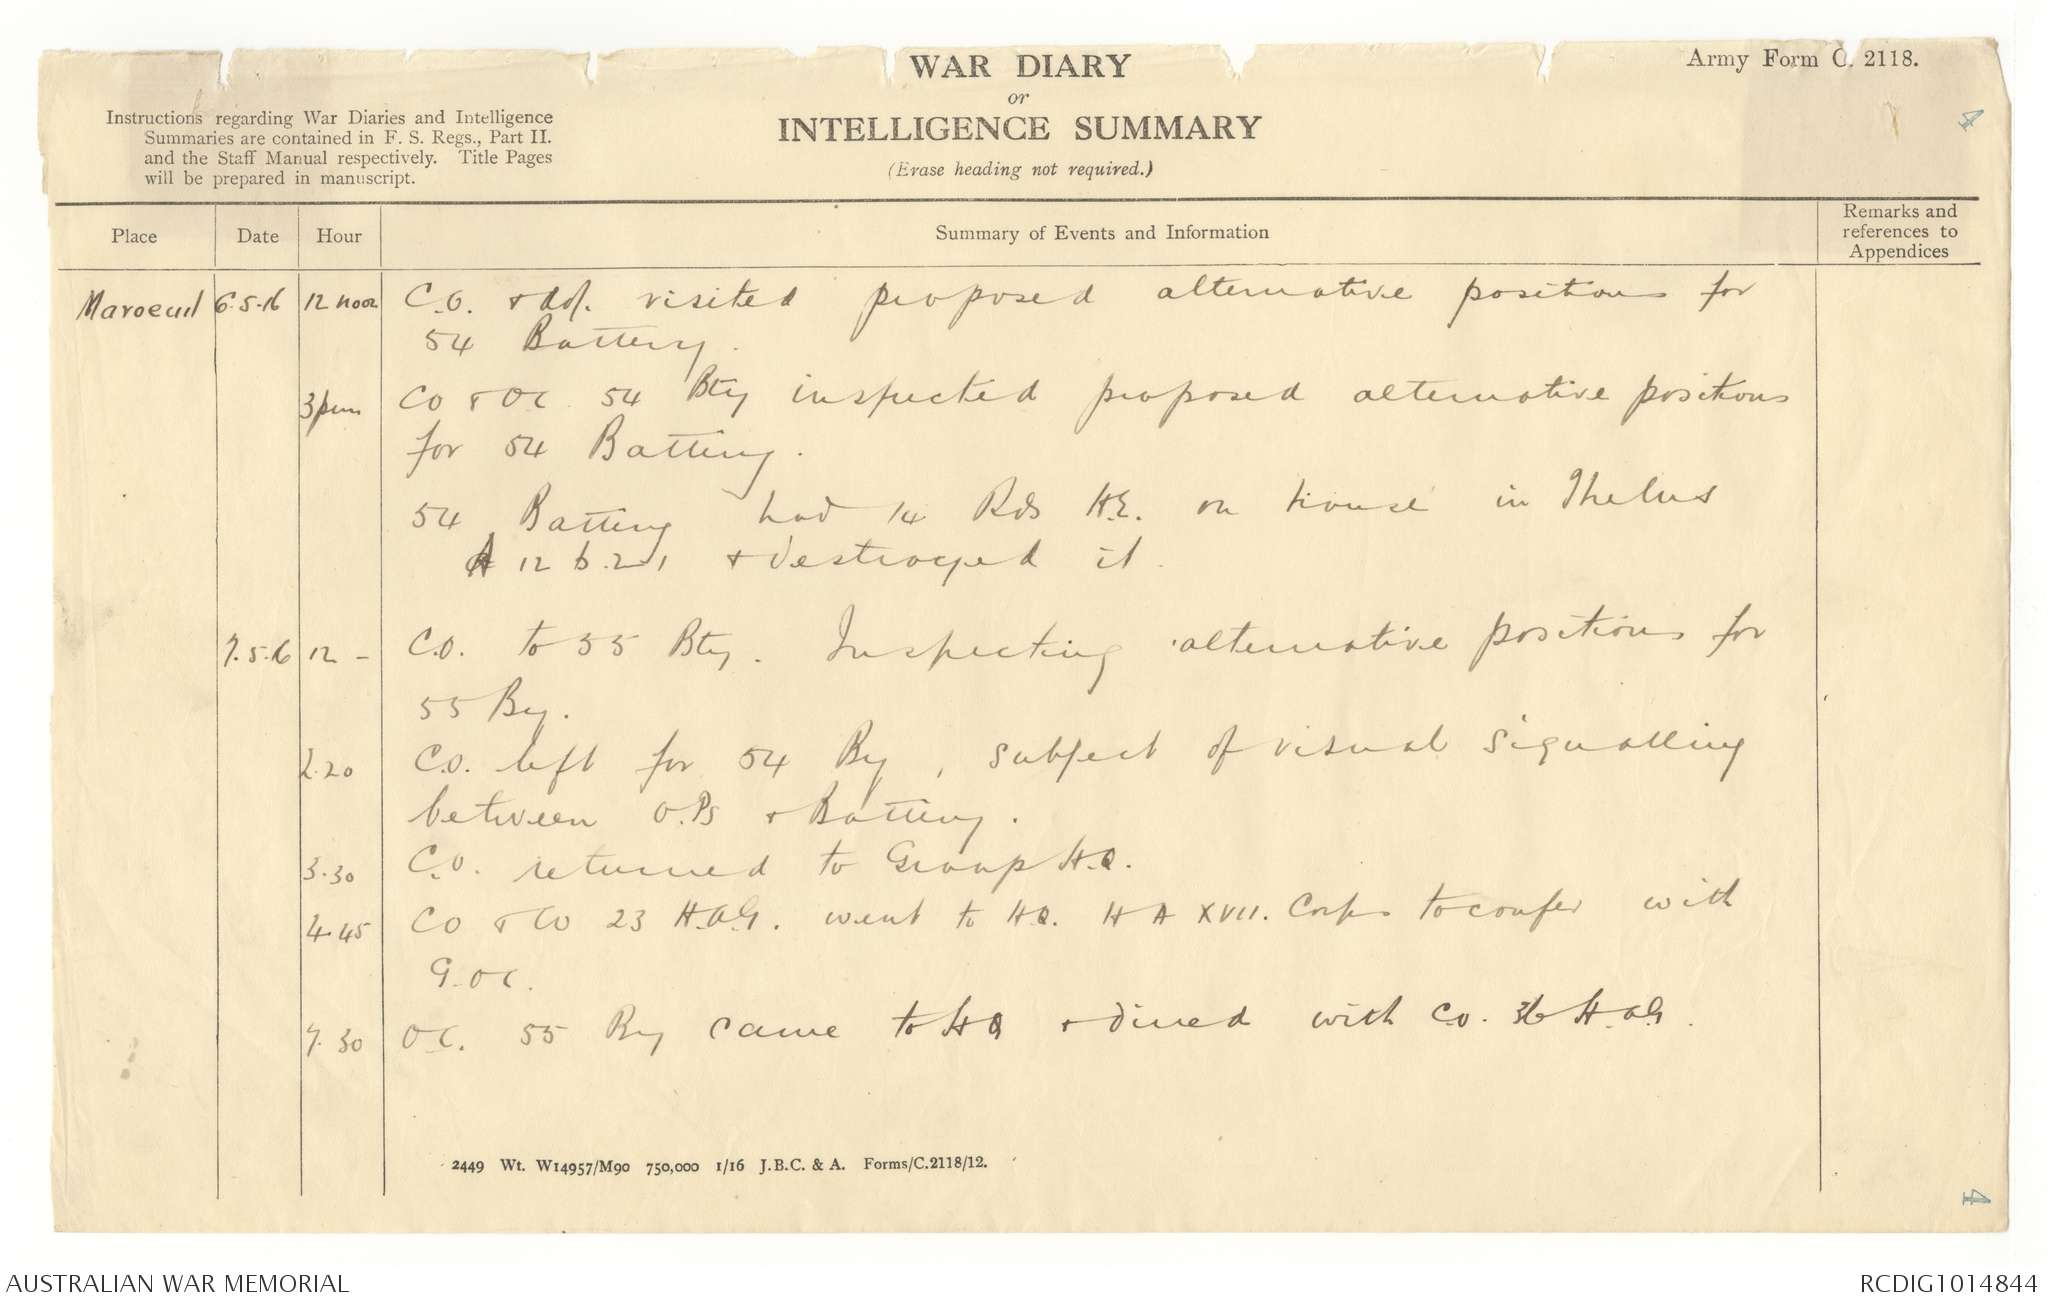 WAR DIARY
or
INTELLIGENCE SUMMARY
(Erase heading not required.)
Army Form C. 2118.
4
Instructions regarding War Diaries and Intelligence
Summaries are contained in F. S. Regs., Part II.
and the Staff Manual respectively. Title Pages
will be prepared in manuscript.
Place Date Hour Summary of Events and Information Remarks and references to Appendices
Maroeuil 6.5.16 12 noon C.O. & Adj. visited proposed alternative positions for
54 Battery.
3pm CO & OC 54 Bty inspected proposed alternative positions
for 54 Battery.
54 Battery had 14 Rds H.E. on house in Thelus
A 12 b.2.1 & destroyed it.
7.5.16 12 - C.O. to 55 Bty. Inspecting alternative positions for
55 By.
2.20 C.O. left for 54 By, subject of visual signalling
between O.Ps & Battery.
3.30 C.O. returned to Group H.Q.
4.45 CO & CO 23 H.A.G. went to HQ. H A XVII. Corps to confer with
G.OC.
7.30 O.C. 55 By came to HQ & dined with C.O. 36 H.A.G.
2449 Wt. W14957/M90 750,000 1/16 J.B.C. & A. Forms/C.2118/12.
4
AUSTRALIAN WAR MEMORIAL
RCDIG1014844